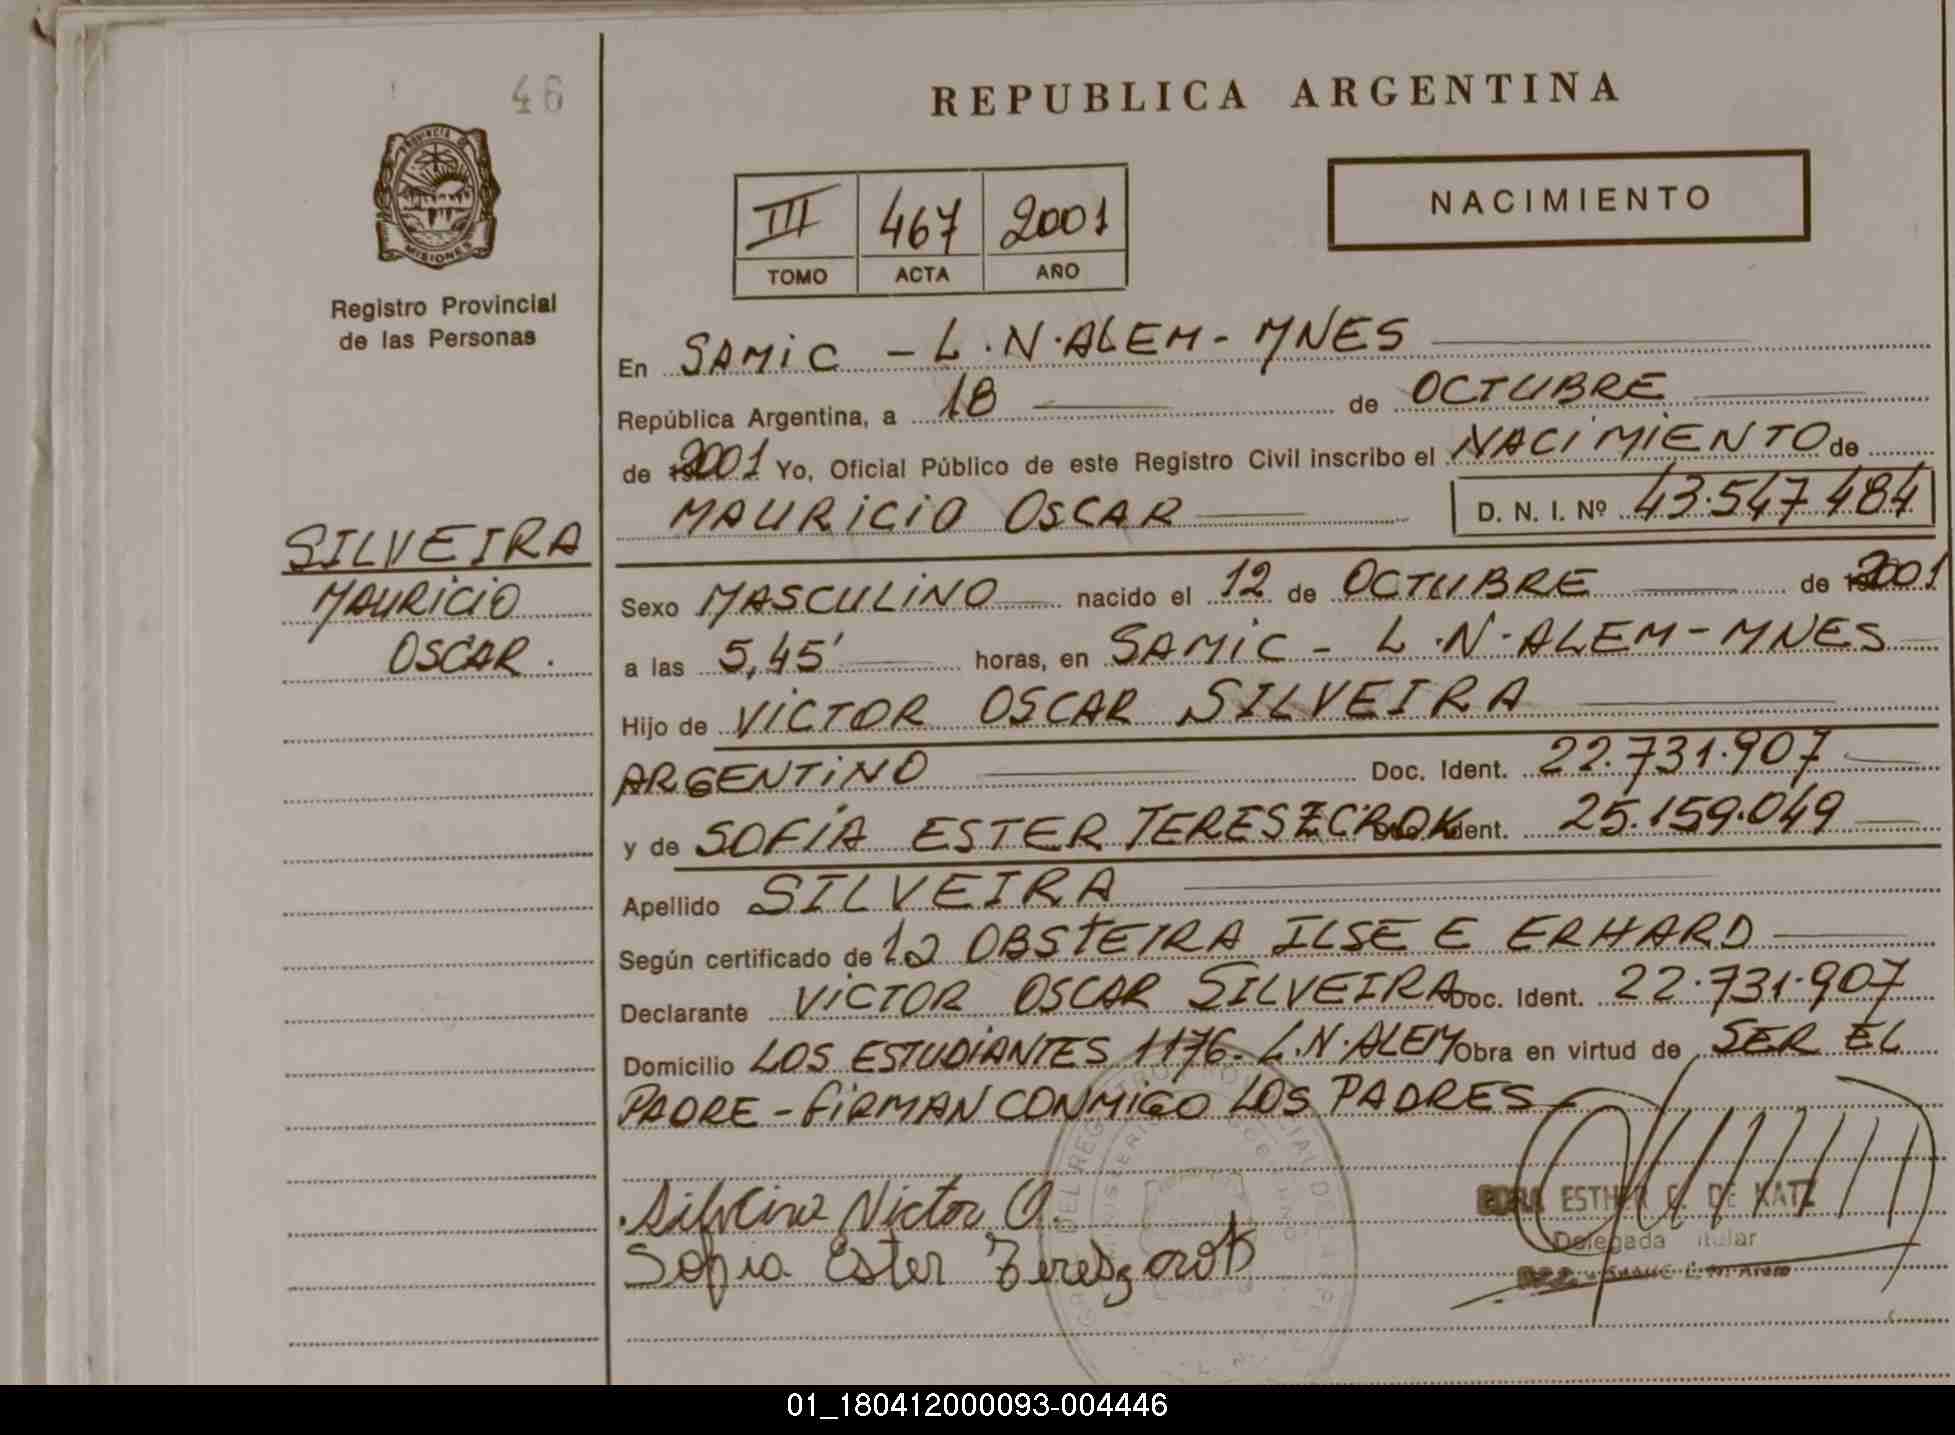 46
REPUBLICA ARGENTINA
PROVINCIA DE
MISIONES
Registro Provincial
de las Personas
III 467 2001
TOMO ACTA AÑO
NACIMIENTO
En SAMIC - L.N.ALEM - MNES
República Argentina, a 18 de OCTUBRE
de 2001 Yo, Oficial Público de este Registro Civil inscribo el NACIMIENTO de
MAURICIO OSCAR D. N. I. Nº 43.547 484
SILVEIRA
MAURICIO
OSCAR.
Sexo MASCULINO nacido el 12 de OCTUBRE de 2001
a las 5,45' horas, en SAMIC - L.N.ALEM - MNES
Hijo de VICTOR OSCAR SILVEIRA
ARGENTINO Doc. Ident. 22.731.907
y de SOFIA ESTER TERESZCROK Doc. Ident. 25.159.049
Apellido SILVEIRA
Según certificado de la OBSTETRA ILSE E ERHARD
Declarante VICTOR OSCAR SILVEIRA Doc. Ident. 22.731.907
Domicilio LOS ESTUDIANTES 1176- L.N.ALEM Obra en virtud de SER EL
PADRE - FIRMAN CONMIGO LOS PADRES
Silveira Victor O.
Sofia Ester
ESTHER C. DE KATZ
Delegada Titular
01_180412000093-004446